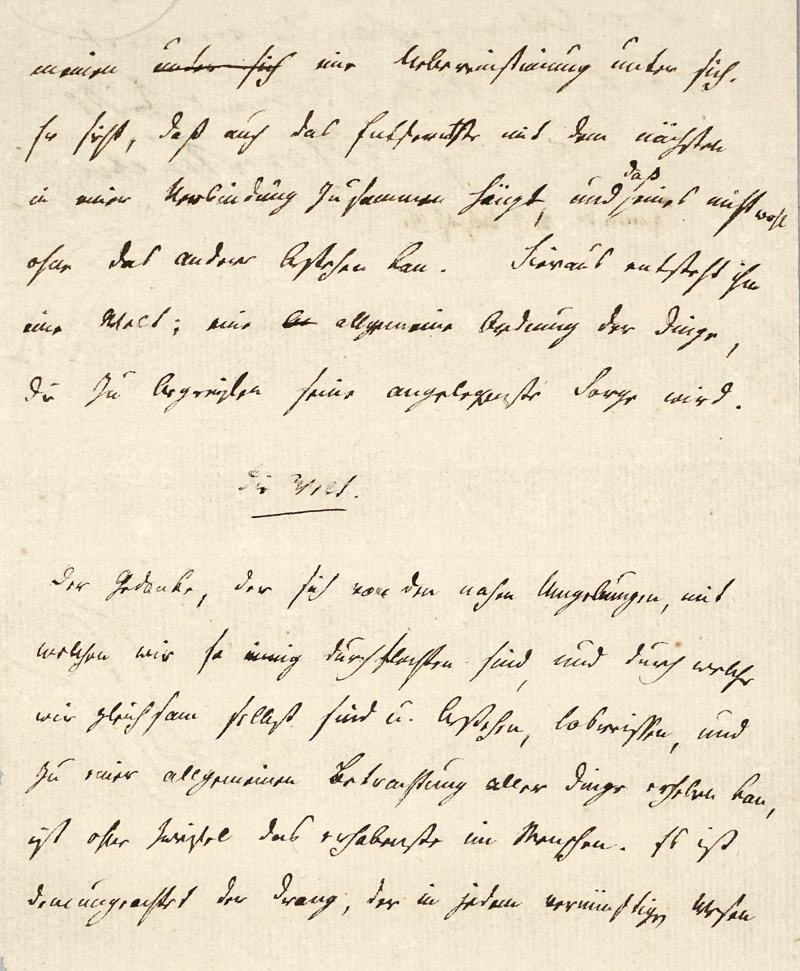 meinen unter sich eine Uebereinstimung unter sich.
Er sieht, daß auch das Entfernteste mit dem nächsten
in einer Verbindung zusammen hängt, und daß eines nicht wohl
ohne das andere bestehen kan. Hieraus entsteht ihm
eine Welt; eine allgemeine Ordnung der Dinge,
die zu begreifen seine angelegenste Sorge wird.
Die Welt.
Der Gedanke, der sich von den nahen Umgebungen, mit
welchen wir so innig durchflochten sind, und durch welche
wir gleichsam selbst sind u. bestehen, losreissen, und
zu einer allgemeinen Betrachtung aller Dinge erheben kan,
ist ohne Zweifel das erhabenste im Menschen. Es ist
demungeachtet der Drang, der in jedem vernünftigen Wesen